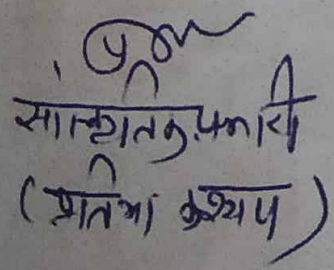 सांस्कृतिक प्रभारी
(प्रतिभा कश्यप)